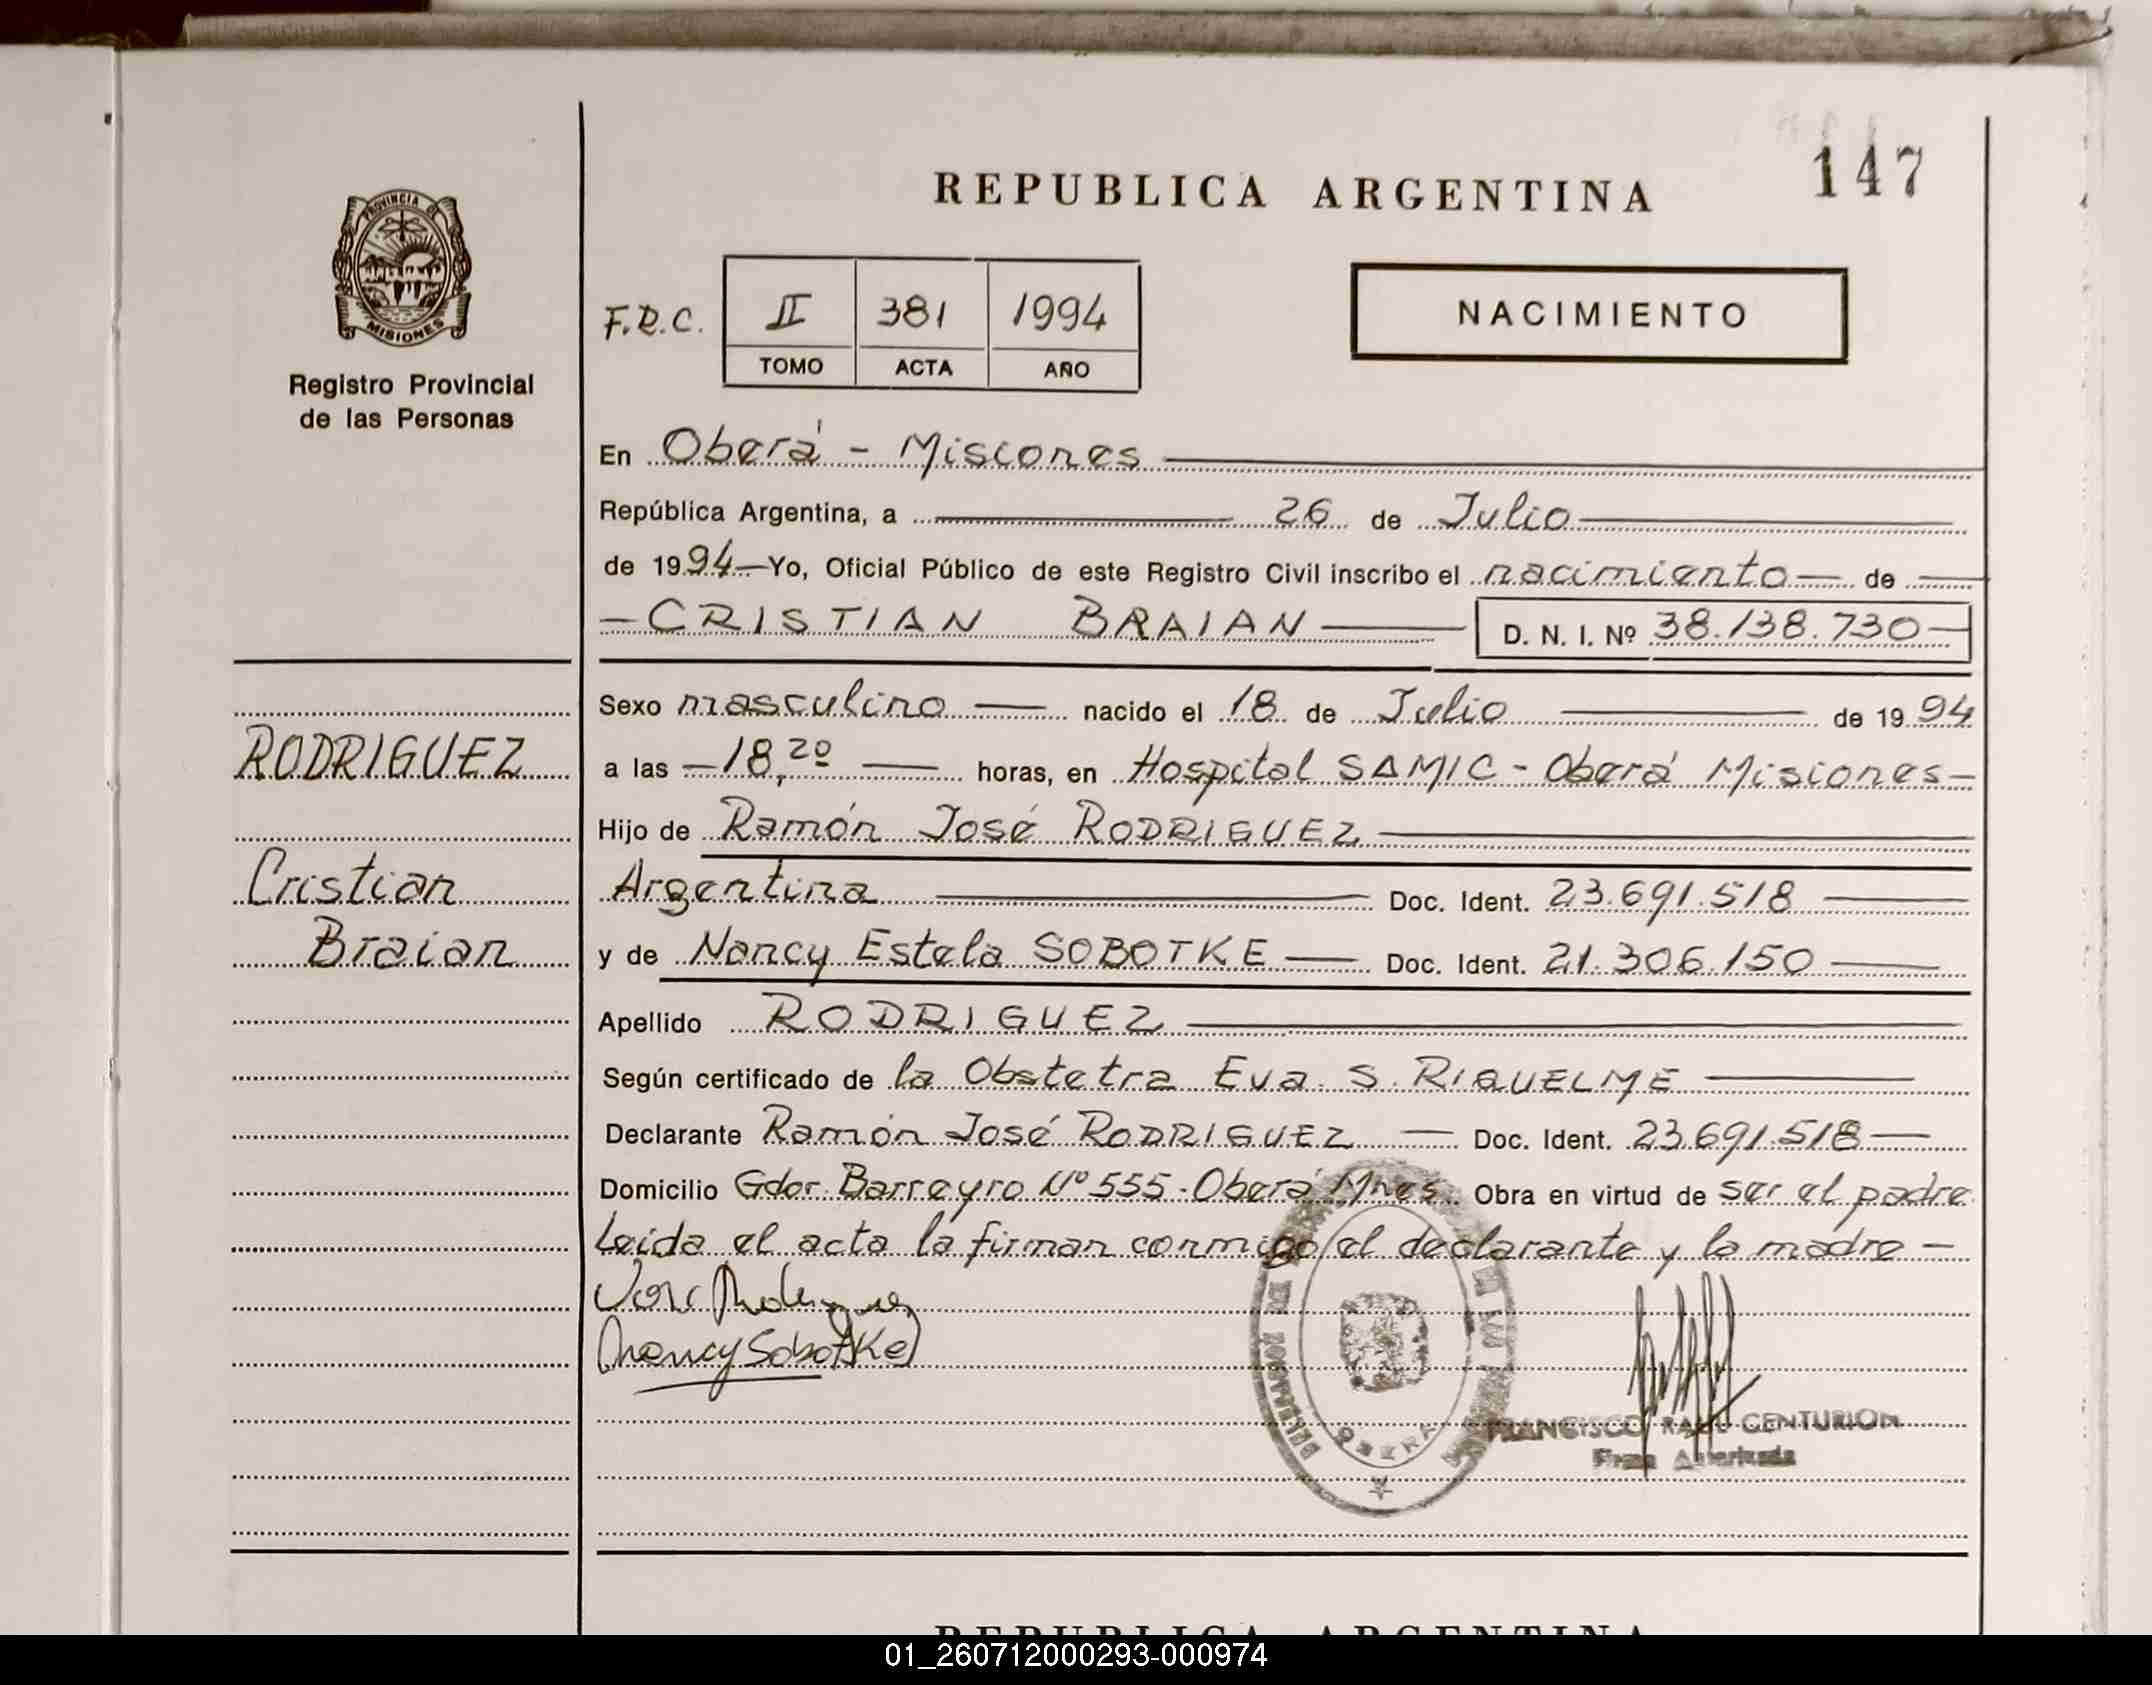 147
REPUBLICA ARGENTINA
PROVINCIA DE
MISIONES
Registro Provincial
de las Personas
F.R.C. II 381 1994
TOMO ACTA AÑO
NACIMIENTO
En Oberá - Misiones
República Argentina, a 26 de Julio
de 1994 Yo, Oficial Público de este Registro Civil inscribo el nacimiento de
CRISTIAN BRAIAN D. N. I. Nº 38.138.730
Sexo masculino nacido el 18 de Julio de 1994
RODRIGUEZ
a las 18,20 horas, en Hospital SAMIC - Oberá Misiones
Hijo de Ramón José RODRIGUEZ
Cristian
Argentina Doc. Ident. 23.691.518
Braian
y de Nancy Estela SOBOTKE Doc. Ident. 21.306.150
Apellido RODRIGUEZ
Según certificado de la Obstetra Eva S. RIQUELME
Declarante Ramón José RODRIGUEZ Doc. Ident. 23.691.518
Domicilio Gdor. Barreyro Nº 555 - Oberá Mnes. Obra en virtud de ser el padre
Leida el acta la firman conmigo el declarante y la madre
José Rodriguez
Nancy Sobotke
OBERA
FRANCISCO RAUL CENTURION
Firma Autorizada
REPUBLICA ARGENTINA
01_260712000293-000974